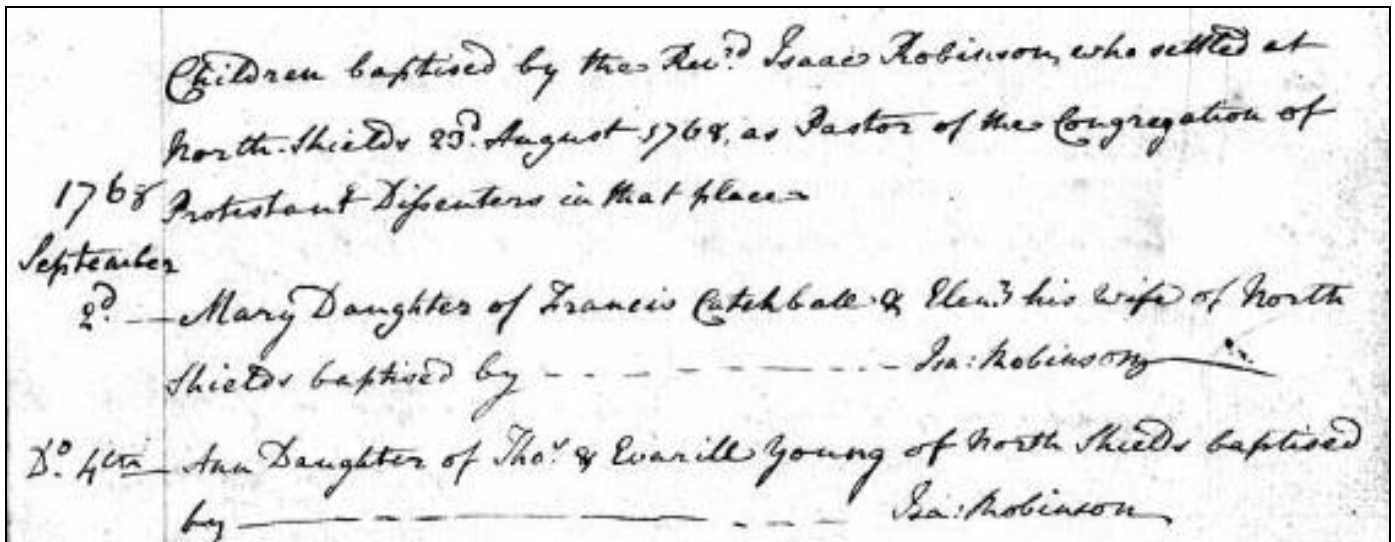 Children baptised by the Revd. Isaac Robinson, who settled at
North-Shields 23d. August 1768, as Pastor of the Congregation of
1768 Protestant Dissenters in that place
September
2d. — Mary Daughter of Francis Catchball & Elenr. his wife of North
Shields baptised by - - - - - - - - - - - - Isa: Robinson
Do. 4th — Ann Daughter of Thos. & Evarill Young of North Shields baptised
by — — — — - - - - Isa: Robinson